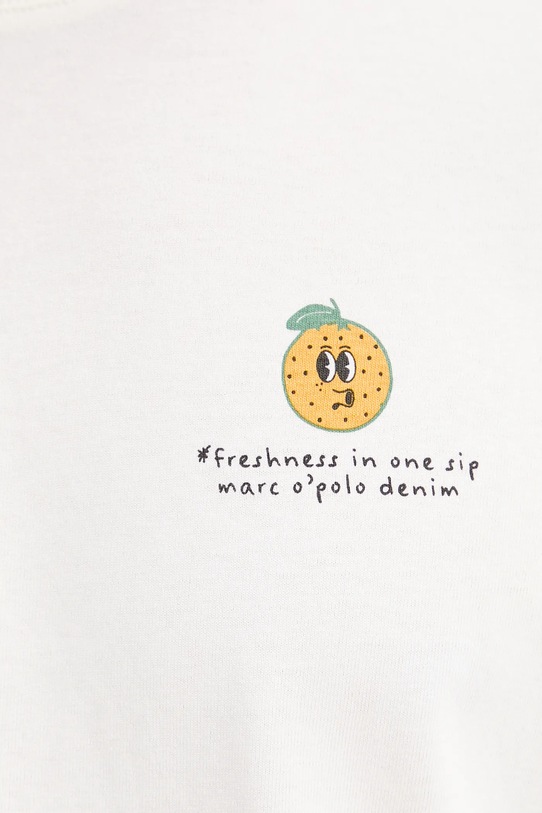 *freshness in one sip
marc o'polo denim